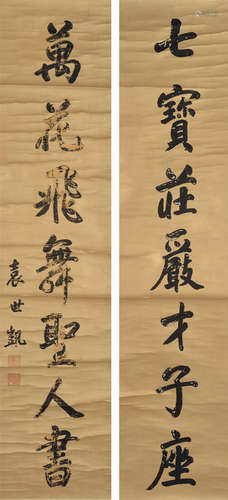 七寶莊嚴才子座
萬花飛舞聖人書
袁世凱